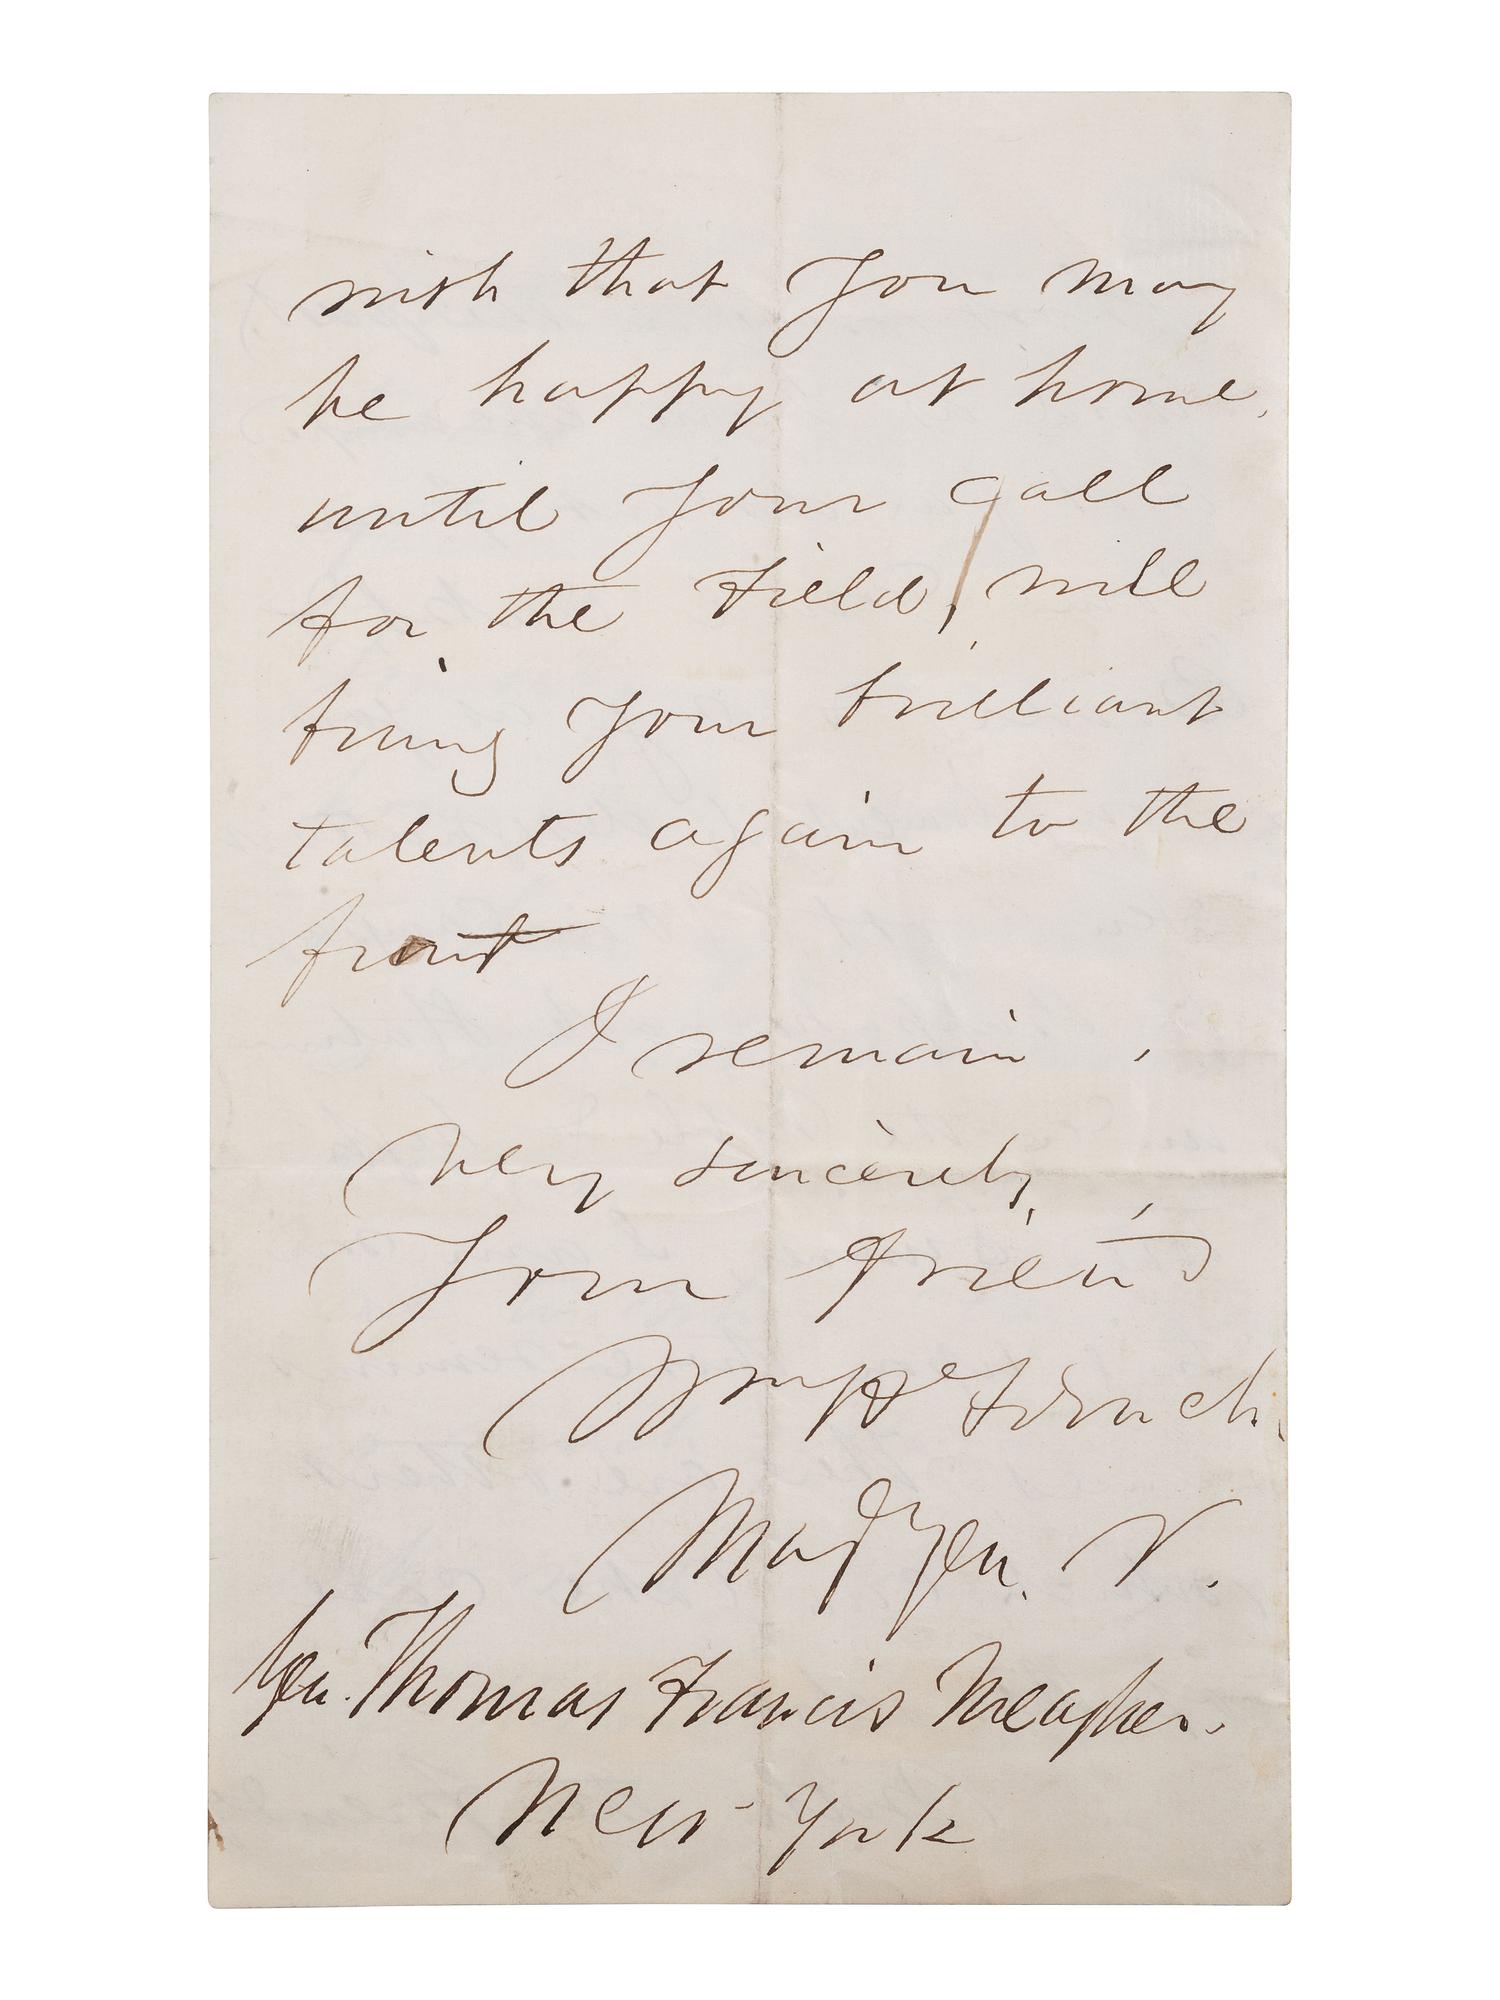 wish that you may
be happy at home,
until your call
for the field, will
bring your brilliant
talents again to the
front
I remain,
very sincerely,
Your friend
Wm H French.
Maj Gen. V.
Gen. Thomas Francis Meagher.
New York